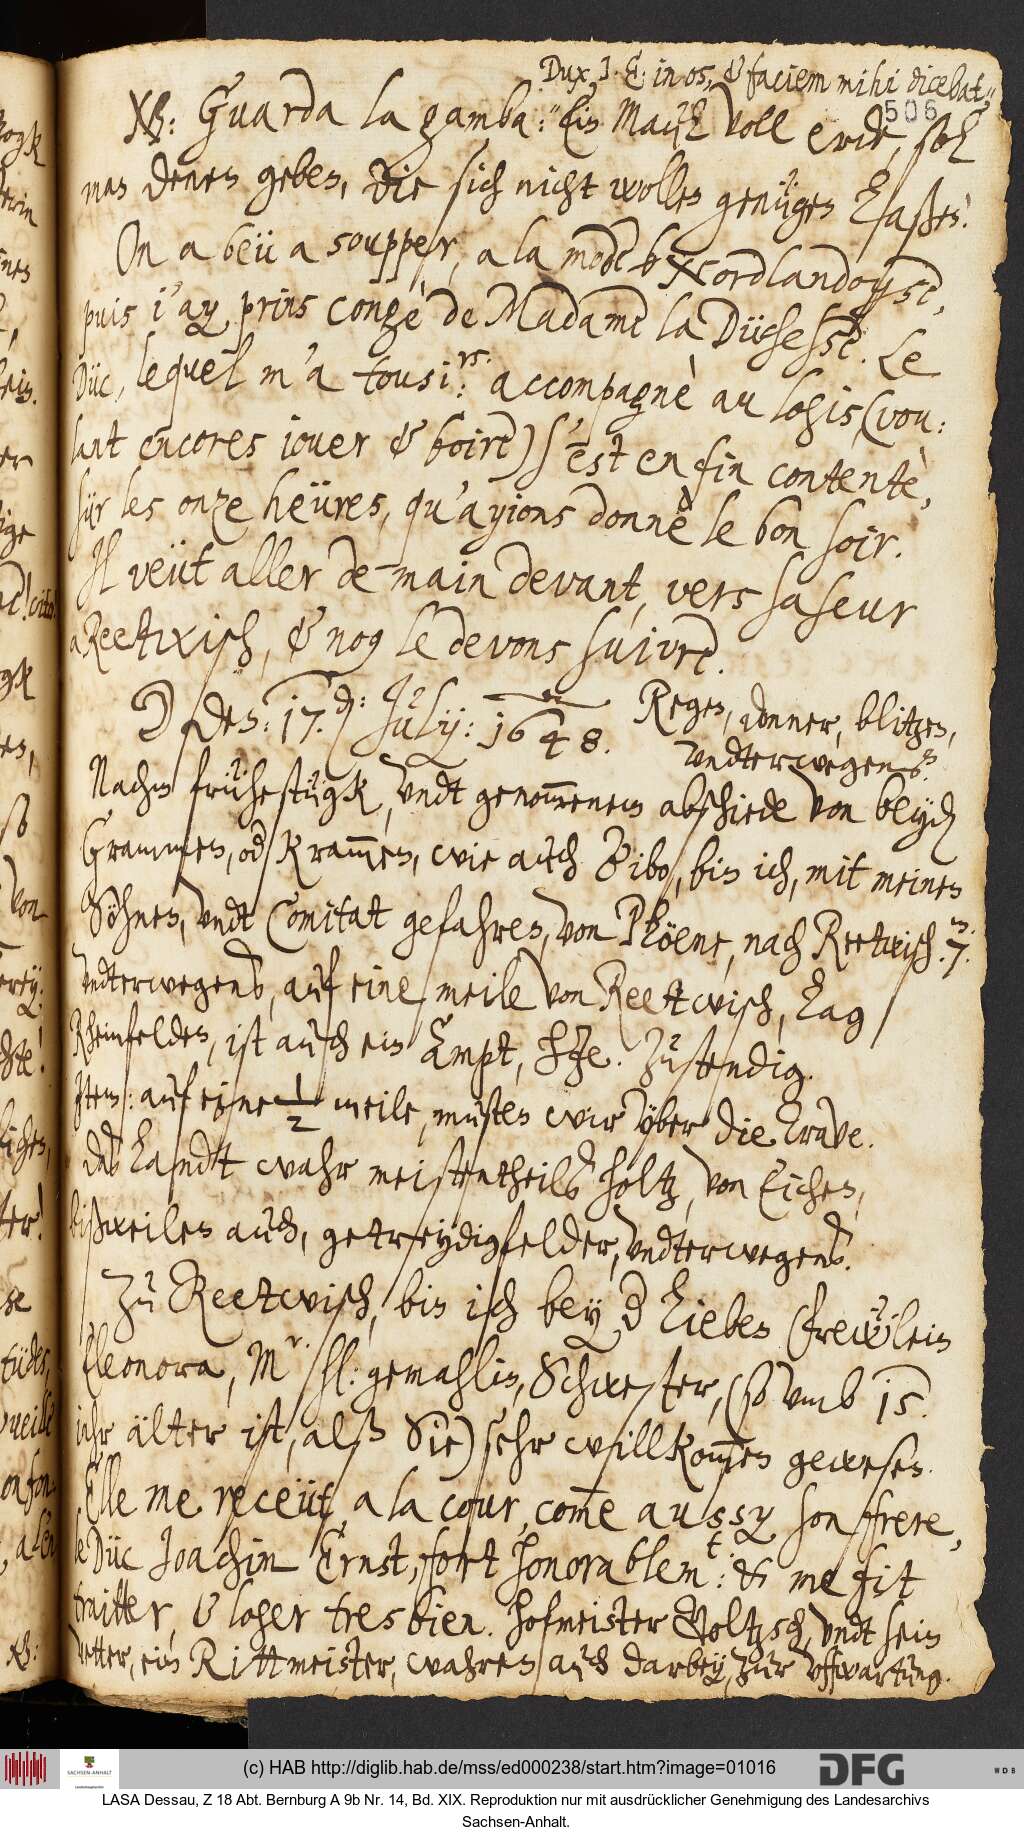 Dux J. E. in os, & faciem mihi dicebat,
506
NB: Guarda la gamba: Ein Maul voll erde, sol
man denen geben, die sich nicht wollen genügen laßen.
On a beü a soupper, a la mode Nordlandoyse,
puis i'ay prins congè de Madame la Düchesse. Le
Düc, lequel m'a tousi.rs accompagnè au logis, (vou:
lant encores iouer & boire) s'est en fin contentè,
sür les onze heüres, qu'ayions donnè le bon soir.
Il veüt aller de-main devant, vers sa seur
a Reetwisch, & nous le devons suivre.
D den: 17. July: 1648. Regen, donner, blitzen,
vndterwegens.
Nachm frühestügk, vndt genommenem abschiede von beyden
Grammen, oder Krammen, wie auch Bibo, bin ich, mit meinen
Söhnen, vndt Comitat gefahren, von Plöene, nach Reetwisch. 7. m.
vndterwegens, auf eine meile von Reetwisch, lag
Rheinfelden, ist auch ein Ampt, zustendig.
Item: auf eine 1/2 meile, musten wir über die Trave.
das Landt wahr meistentheils holtz, von Eichen,
bißweilen auch, getreydigfelder, vndterwegens.
Zu Reetwisch, bin ich bey der lieben frewlein
Eleonora, Mr. hl: gemahlin, Schwester, (so vmb 15.
iahr älter ist, alß Sie) sehr willkommen gewesen.
Elle me receüt, a la cour, come aussy son frere,
le Düc Joachim Ernst, fort honorablem.t & me fit
traitter, & loger tres bien. Hofmeister vndt sein
vetter, ein Rittmeister, wahren auch darbey, zur vffwartung.
(c) HAB http://diglib.hab.de/mss/ed000238/start.htm?image=01016
DFG
WDB
SACHSEN-ANHALT
LASA Dessau, Z 18 Abt. Bernburg A 9b Nr. 14, Bd. XIX. Reproduktion nur mit ausdrücklicher Genehmigung des Landesarchivs
Sachsen-Anhalt.